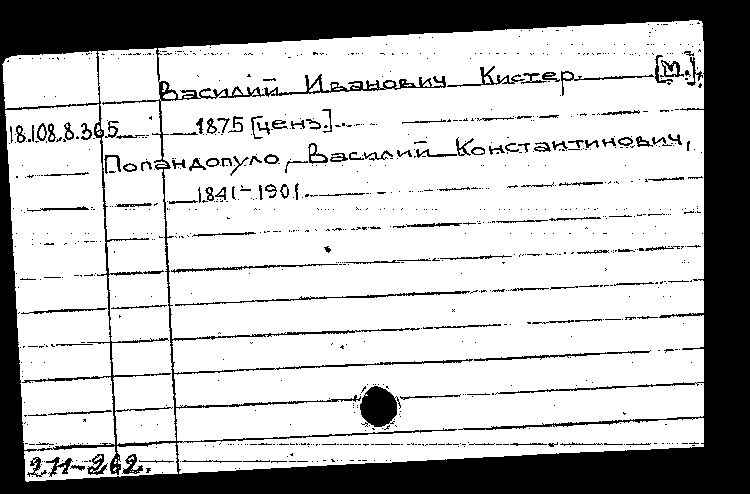 Василий Иванович Кистер. [м.],
18.108.8.365 1875 [ценз.].
Попандопуло, Василий Константинович,
1841-1901.
211-262.